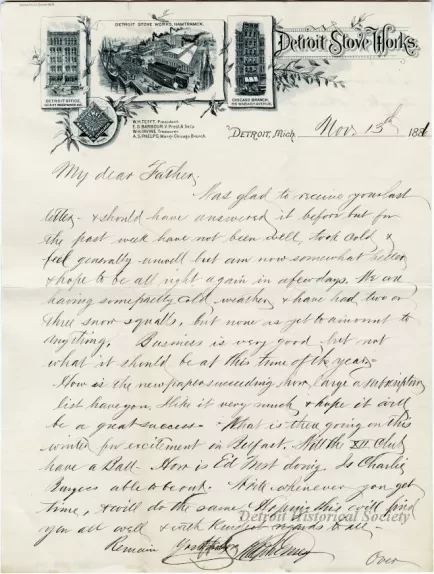 DETROIT STOVE WORKS, HAMTRAMCK.
Detroit Stove Works.
DETROIT OFFICE,
CHICAGO BRANCH,
W.H. TEFFT, President.
E.S. BARBOUR, V. Prest & Secy
W.H. IRVINE, Treasurer.
A.S. PHELPS, Mang'r Chicago Branch.
DETROIT, Mich. Nov 15th 188
My dear Father,
Was glad to receive your last
letter - & should have answered it before but for
the past week have not been well, took cold &
feel generally unwell but am now somewhat better
& hope to be all right again in a few days. We are
having some pretty cold weather & have had two or
three snow squalls, but none as yet to amount to
anything. Business is very good but not
what it should be at this time of the year -
How is the new paper succeeding how large a subscription
list have you. I like it very much & hope it will
be a great success - What is there going on this
winter for excitement in Belfast. Will the XII Club
have a Ball - How is Ed Frost doing. Is Charlie
Burgess able to be out. Write whenever you get
time, & will do the same. Hoping this will find
you all well & with kindest regards to all -
Remain Your
Over
Detroit Historical Society